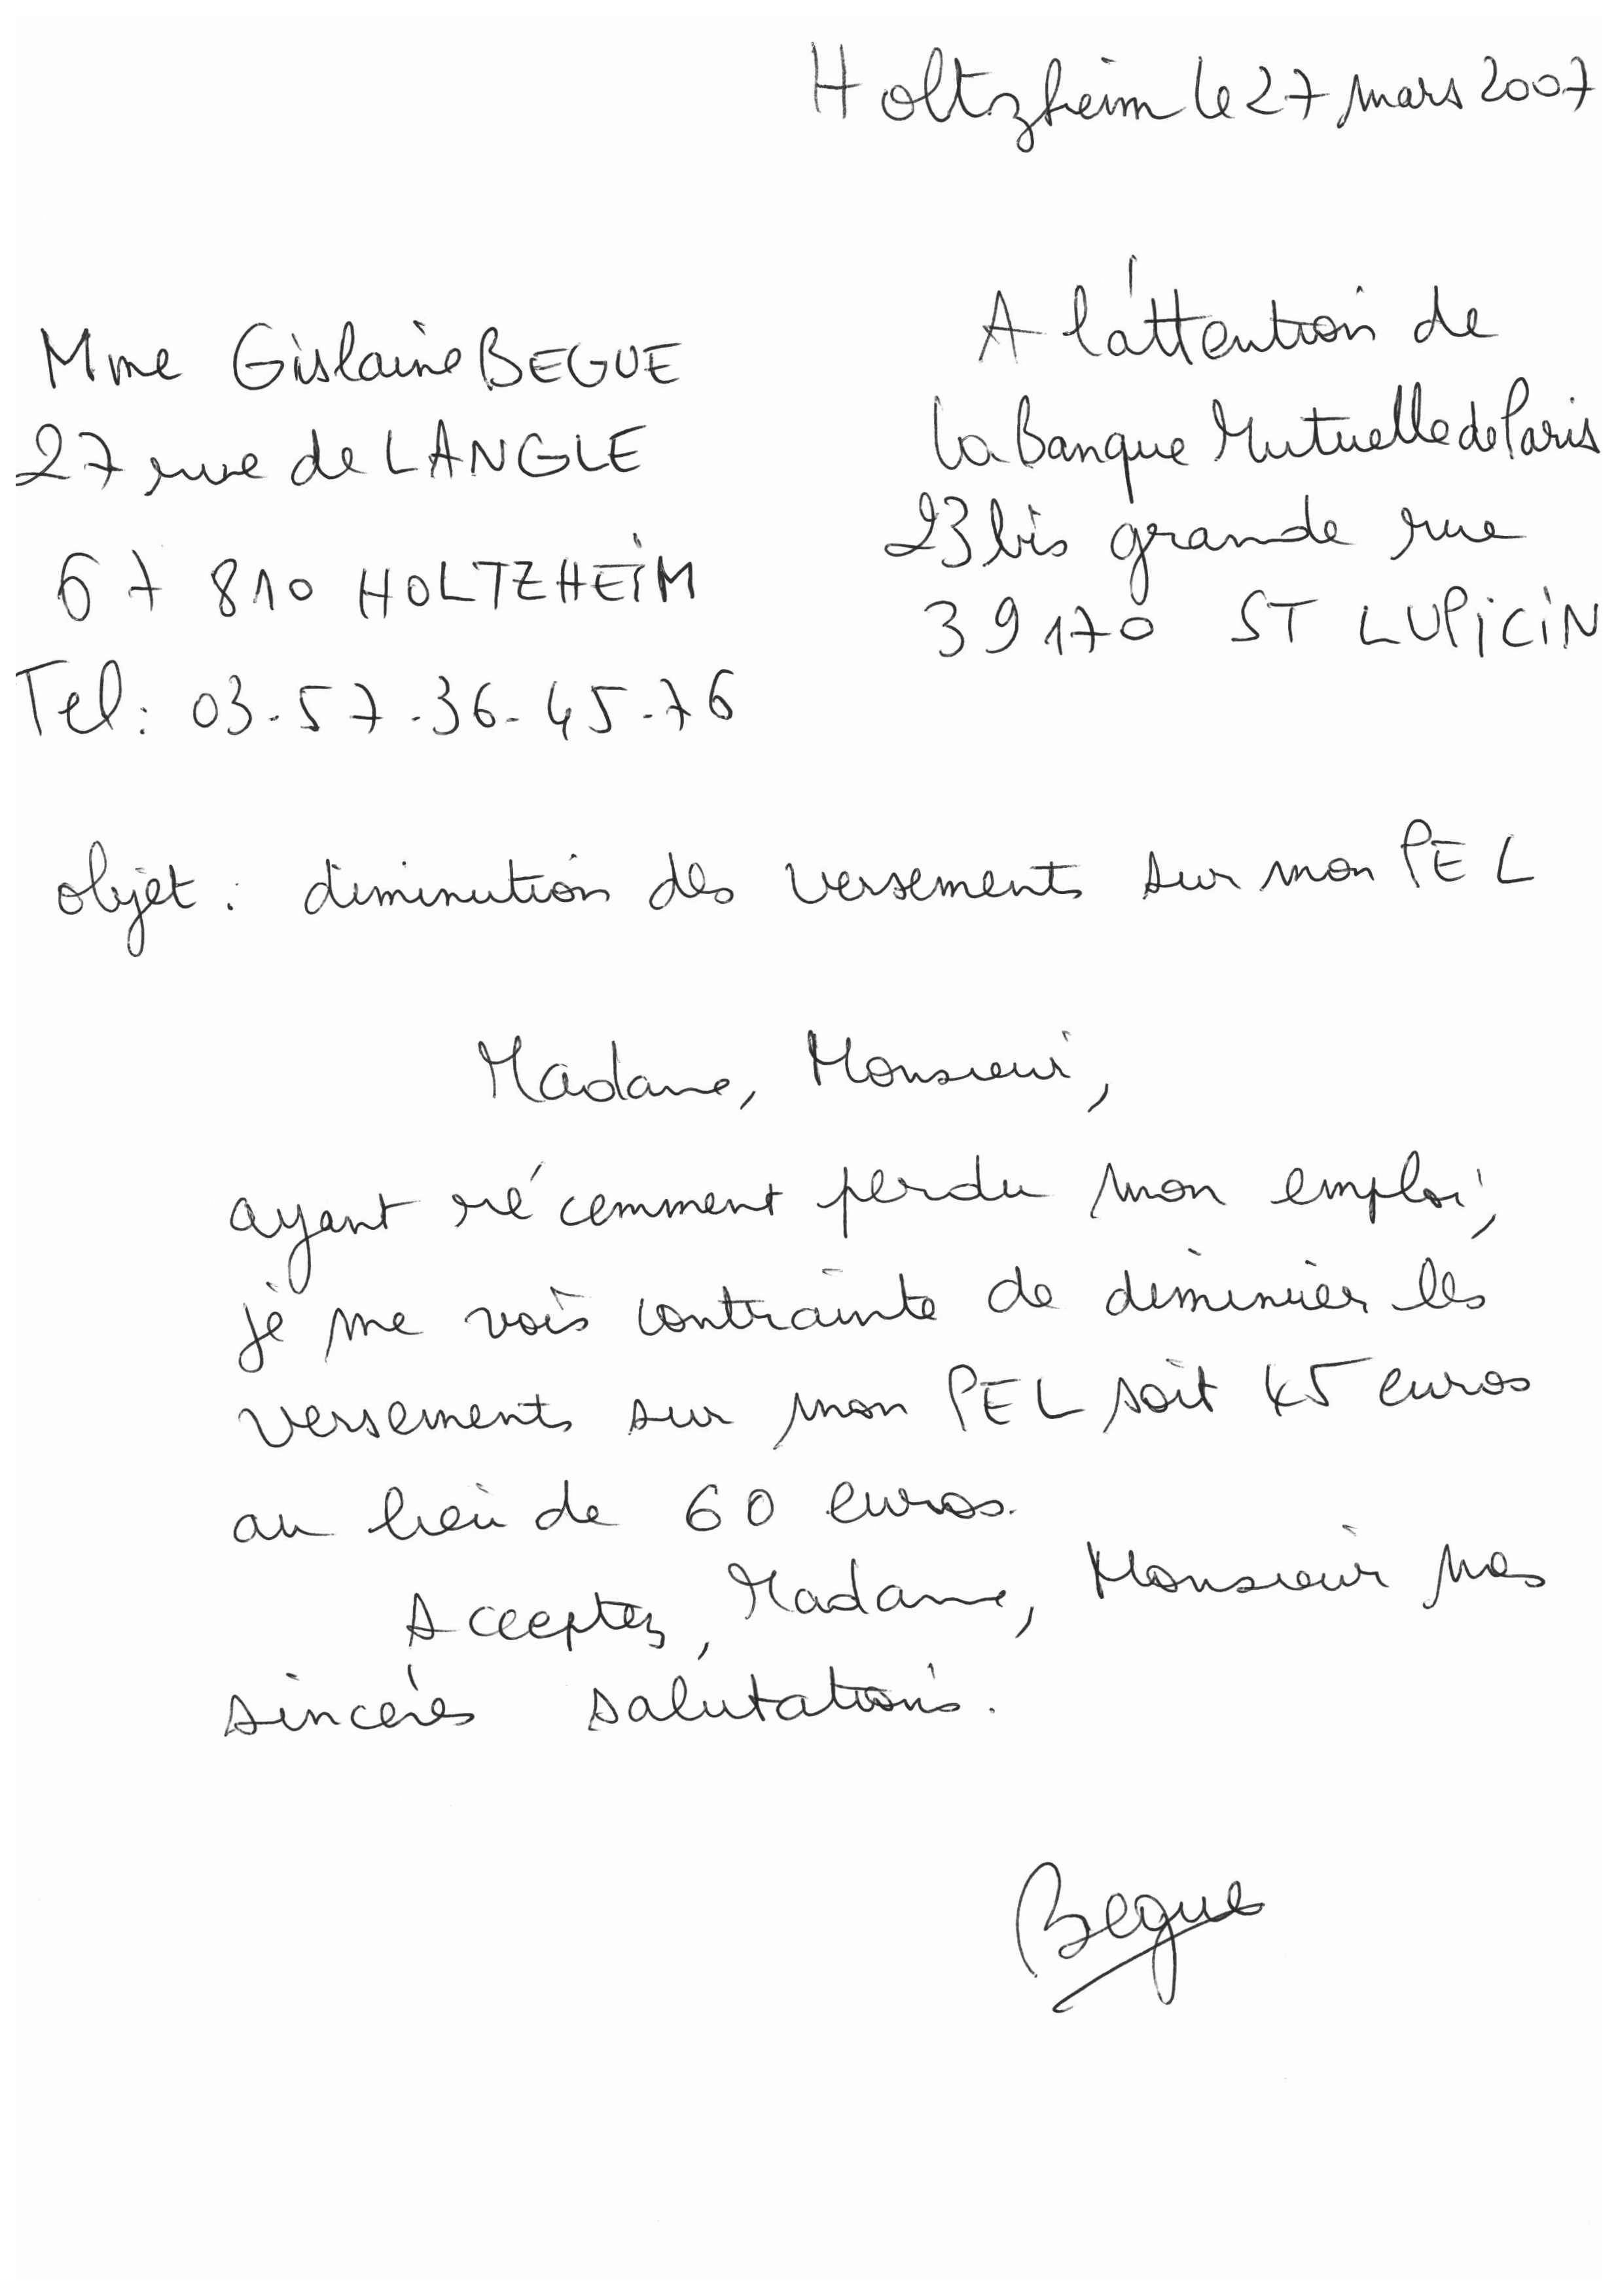 Holtzheim le 27 mars 2007
Mme Gislaine BEGUE
27 rue de LANGLE
67 810 HOLTZHEIM
Tel : 03.57.36.45.76
A l'attention de
la Banque Mutuelle de Paris
23 bis grande rue
39170 ST LUPICIN
objet : diminution des versements sur mon PEL
Madame, Monsieur,
ayant récemment perdu mon emploi,
je me vois contrainte de diminuer les
versements sur mon PEL soit 45 euros
au lieu de 60 euros.
Acceptez, Madame, Monsieur mes
sincères salutations.
Begue